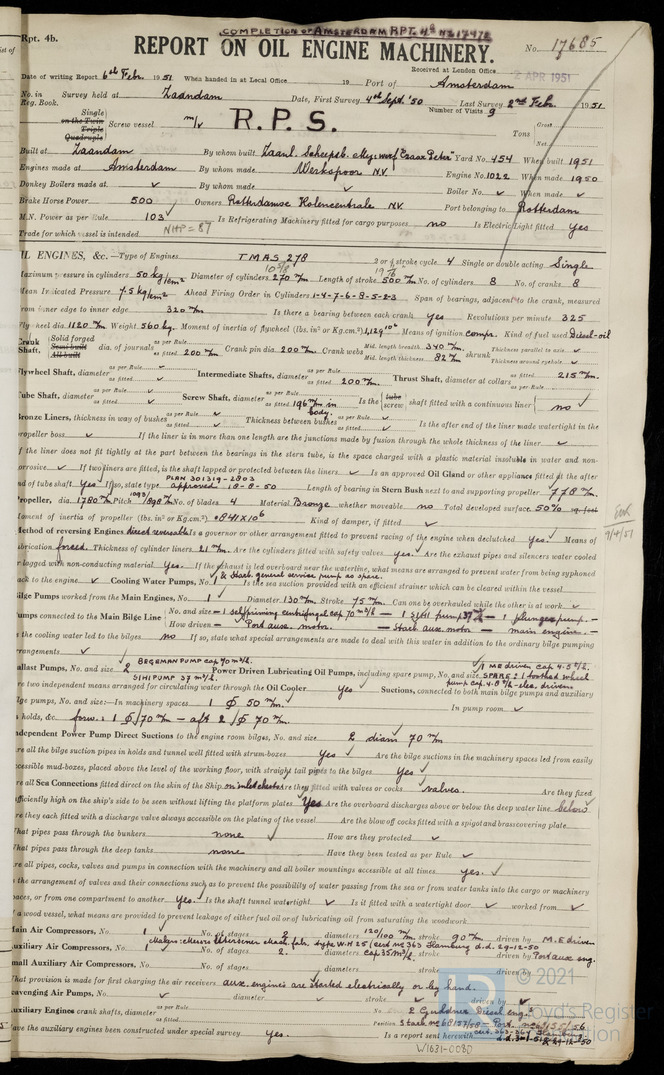 Rpt. 4b.
COMPLETION OF AMSTERDAM RPT. No
REPORT ON OIL ENGINE MACHINERY.
No. 17685
Received at London Office
2 APR 1951
Date of writing Report 6th Febr. 1951 When handed in at Local Office 19 Port of Amsterdam
No. in Reg. Book. Survey held at Zaandam Date, First Survey 4th Sept. '50 Last Survey 2nd Febr. 1951
Number of Visits 9
Single on the Twin Triple Quadruple Screw vessel m/v R.P.S. Tons Gross Net
Built at Zaandam By whom built Zaanl. Scheepsb. Mij. werf "Czaar Peter" Yard No. 454 When built 1951
Engines made at Amsterdam By whom made Werkspoor N.V. Engine No. 1022 When made 1950
Donkey Boilers made at ✓ By whom made ✓ Boiler No. ✓ When made ✓
Brake Horse Power 500 Owners Rotterdamse Kolencentrale N.V. Port belonging to Rotterdam
M.N. Power as per Rule 103 NHP = 87 Is Refrigerating Machinery fitted for cargo purposes no Is Electric Light fitted Yes
Trade for which vessel is intended
IL ENGINES, &c.—Type of Engines TMAS 278 2 or 4 stroke cycle 4 Single or double acting Single
Maximum pressure in cylinders 50 kg/cm² Diameter of cylinders 270 m/m Length of stroke 500 m/m No. of cylinders 8 No. of cranks 8
Mean Indicated Pressure 7.5 kg/cm² Ahead Firing Order in Cylinders 1-4-7-6-8-5-2-3 Span of bearings, adjacent to the crank, measured
from inner edge to inner edge 320 m/m Is there a bearing between each crank Yes Revolutions per minute 325
Flywheel dia. 1120 m/m Weight 560 kg. Moment of inertia of flywheel (lbs. in² or Kg.cm.²) Means of ignition compr. Kind of fuel used Diesel-oil
Crank Shaft, Solid forged Semi built All built dia. of journals as per Rule as fitted 200 m/m Crank pin dia. 200 m/m Crank webs Mid. length breadth 340 m/m Mid. length thickness 82 m/m shrunk Thickness parallel to axis ✓ Thickness around eyehole ✓
Flywheel Shaft, diameter as per Rule as fitted Intermediate Shafts, diameter as per Rule as fitted 200 m/m Thrust Shaft, diameter at collars as per Rule as fitted 215 m/m
Tube Shaft, diameter as per Rule as fitted Screw Shaft, diameter as per Rule as fitted 196 m/m in body. Is the tube screw shaft fitted with a continuous liner no
Bronze Liners, thickness in way of bushes as per Rule as fitted Thickness between bushes as per Rule as fitted Is the after end of the liner made watertight in the
propeller boss ✓ If the liner is in more than one length are the junctions made by fusion through the whole thickness of the liner ✓
If the liner does not fit tightly at the part between the bearings in the stern tube, is the space charged with a plastic material insoluble in water and non-
corrosive ✓ If two liners are fitted, is the shaft lapped or protected between the liners ✓ Is an approved Oil Gland or other appliance fitted at the after
end of tube shaft Yes If so, state type PLAN 301319-2803 approved 18-8-50 Length of bearing in Stern Bush next to and supporting propeller 778 m/m
Propeller, dia. 1780 m/m Pitch No. of blades 4 Material Bronze whether moveable no Total developed surface 50%
Moment of inertia of propeller (lbs. in² or Kg.cm.²) Kind of damper, if fitted ✓
Method of reversing Engines direct reversable Is a governor or other arrangement fitted to prevent racing of the engine when declutched Yes Means of
lubrication forced. Thickness of cylinder liners 21 m/m. Are the cylinders fitted with safety valves yes. Are the exhaust pipes and silencers water cooled
or lagged with non-conducting material Yes. If the exhaust is led overboard near the waterline, what means are arranged to prevent water from being syphoned
back to the engine ✓ Cooling Water Pumps, No. 1 & Starb. general service pump as spare. Is the sea suction provided with an efficient strainer which can be cleared within the vessel
Bilge Pumps worked from the Main Engines, No. 1 Diameter 130 m/m Stroke 75 m/m Can one be overhauled while the other is at work ✓
Pumps connected to the Main Bilge Line No. and size — 1 selfpriming centrifugal cap 70 m³/h — 1 Sihi pump 37 — 1 plunger pump. —
How driven — Port aux. motor. — Starb. aux. motor — main engine. —
Is the cooling water led to the bilges no If so, state what special arrangements are made to deal with this water in addition to the ordinary bilge pumping
arrangements ✓
Ballast Pumps, No. and size 2 BEGEMAN PUMP cap 70 m³/h. SIHI PUMP 37 m³/h. Power Driven Lubricating Oil Pumps, including spare pump, No. and size 1 ME driven cap. 4.8 m³/h. SPARE: 1 toothed wheel pump cap. 4.8 m³/h - elec. driven
Are two independent means arranged for circulating water through the Oil Cooler Yes Suctions, connected to both main bilge pumps and auxiliary
bilge pumps, No. and size:—In machinery spaces 1 ∅ 50 m/m. In pump room ✓
In holds, &c. forw.: 1 ∅ 70 m/m — aft 2 ∅ 70 m/m.
Independent Power Pump Direct Suctions to the engine room bilges, No. and size 2 diam 70 m/m
Are all the bilge suction pipes in holds and tunnel well fitted with strum-boxes Yes ✓ Are the bilge suctions in the machinery spaces led from easily
accessible mud-boxes, placed above the level of the working floor, with straight tail pipes to the bilges Yes ✓
Are all Sea Connections fitted direct on the skin of the Ship. on inlet chests Are they fitted with valves or cocks valves. Are they fixed
sufficiently high on the ship's side to be seen without lifting the platform plates Yes Are the overboard discharges above or below the deep water line below
Are they each fitted with a discharge valve always accessible on the plating of the vessel Are the blow off cocks fitted with a spigot and brass covering plate
What pipes pass through the bunkers none ✓ How are they protected ✓
What pipes pass through the deep tanks none Have they been tested as per Rule ✓
Are all pipes, cocks, valves and pumps in connection with the machinery and all boiler mountings accessible at all times yes. ✓
Is the arrangement of valves and their connections such as to prevent the possibility of water passing from the sea or from water tanks into the cargo or machinery
spaces, or from one compartment to another Yes. Is the shaft tunnel watertight ✓ Is it fitted with a watertight door ✓ worked from ✓
If a wood vessel, what means are provided to prevent leakage of either fuel oil or of lubricating oil from saturating the woodwork
Main Air Compressors, No. 1 No. of stages 2 diameters 120/100 m/m stroke 90 m/m driven by M.E driven
Auxiliary Air Compressors, No. No. of stages 2. diameters cap 35 m³/h. stroke driven by Port aux eng.
Small Auxiliary Air Compressors, No. No. of stages diameters stroke driven by
What provision is made for first charging the air receivers aux. engines are started electrically or by hand.
Scavenging Air Pumps, No. ✓ diameter stroke driven by
Auxiliary Engines crank shafts, diameter as per Rule as fitted No. 2 Güldner Diesel eng.
Position
Have the auxiliary engines been constructed under special survey Yes. Is a report sent herewith
W1631-0080
© 2021
Lloyd's Register
Foundation